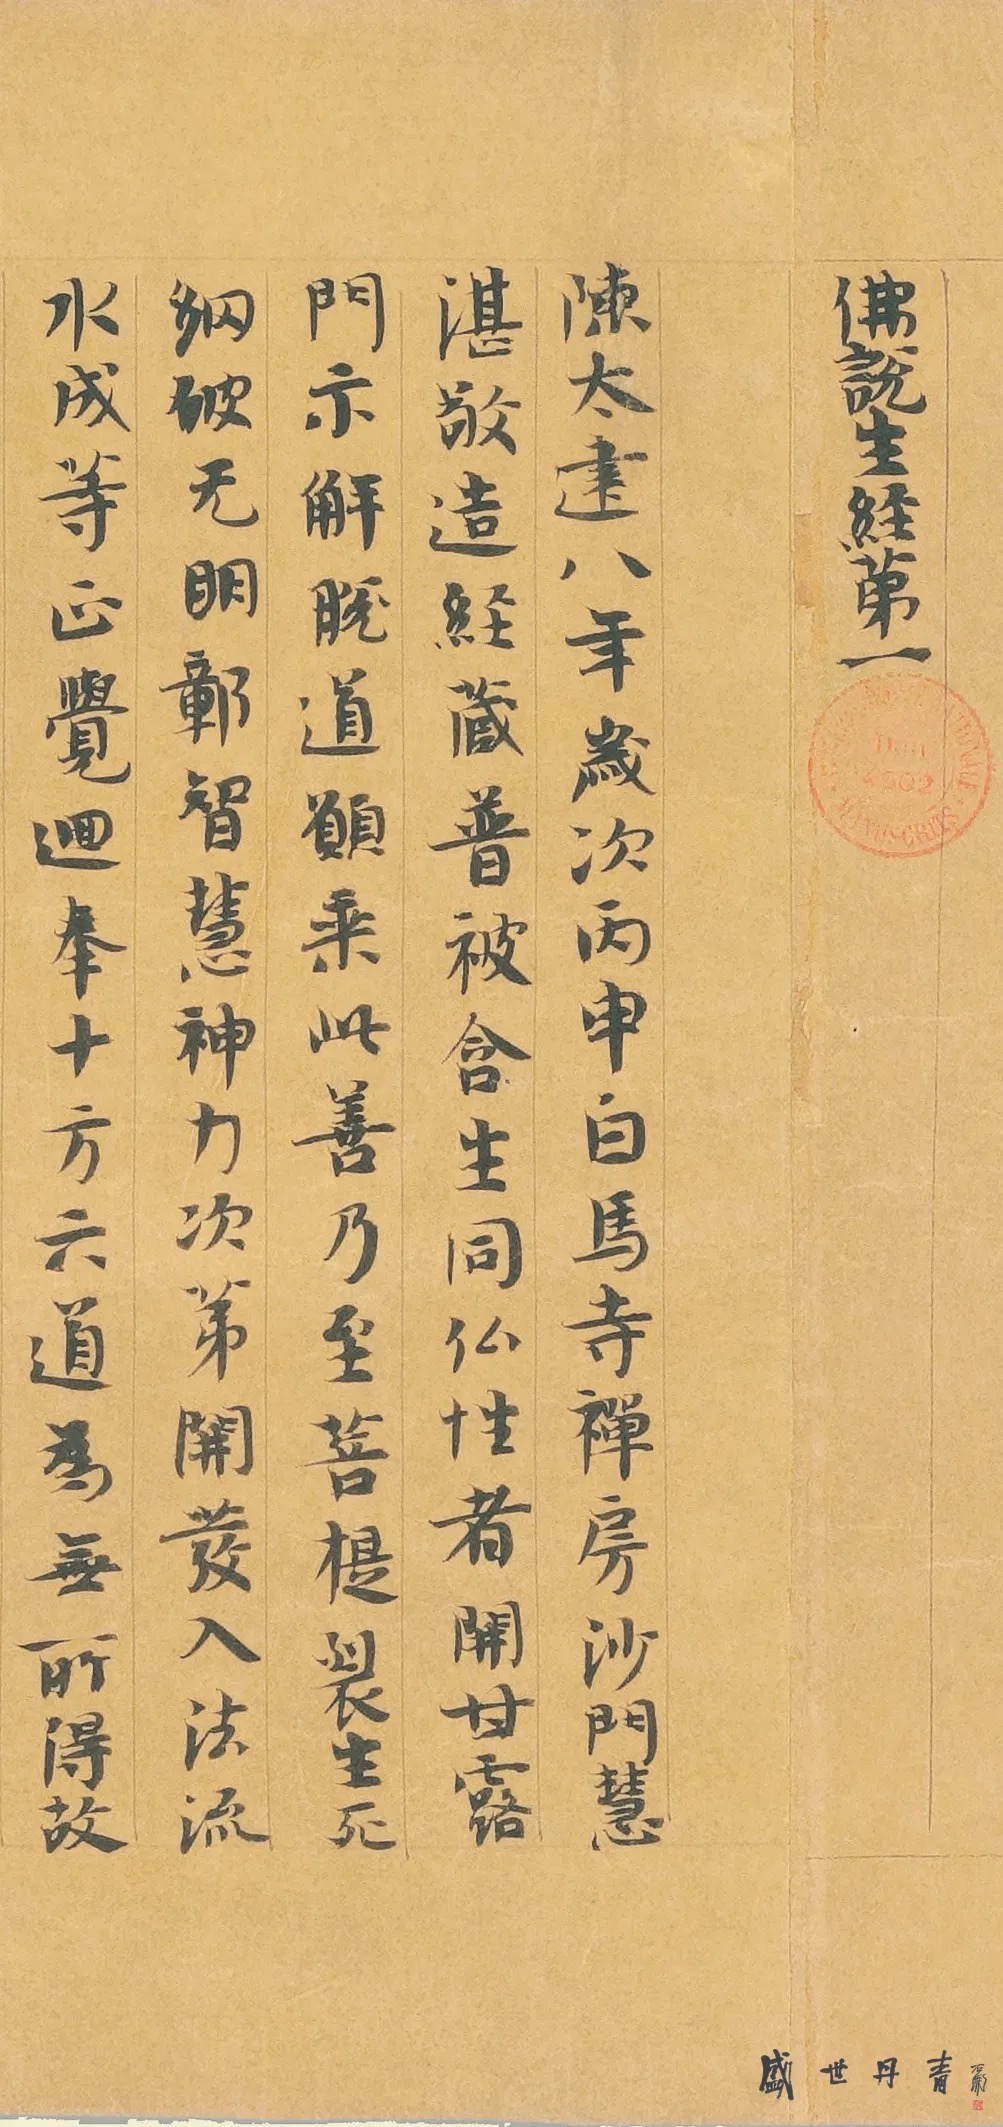 佛說生經第一
陳太建八年歲次丙申白馬寺禪房沙門慧
湛敬造經藏普被含生同仏性者開甘露
門示解脫道願乘此善乃至菩提裂生死
網破无明鄣智慧神力次第開發入法流
水成等正覺迴奉十方六道為無所得故
4502
MANUSCRITS
盛世丹青